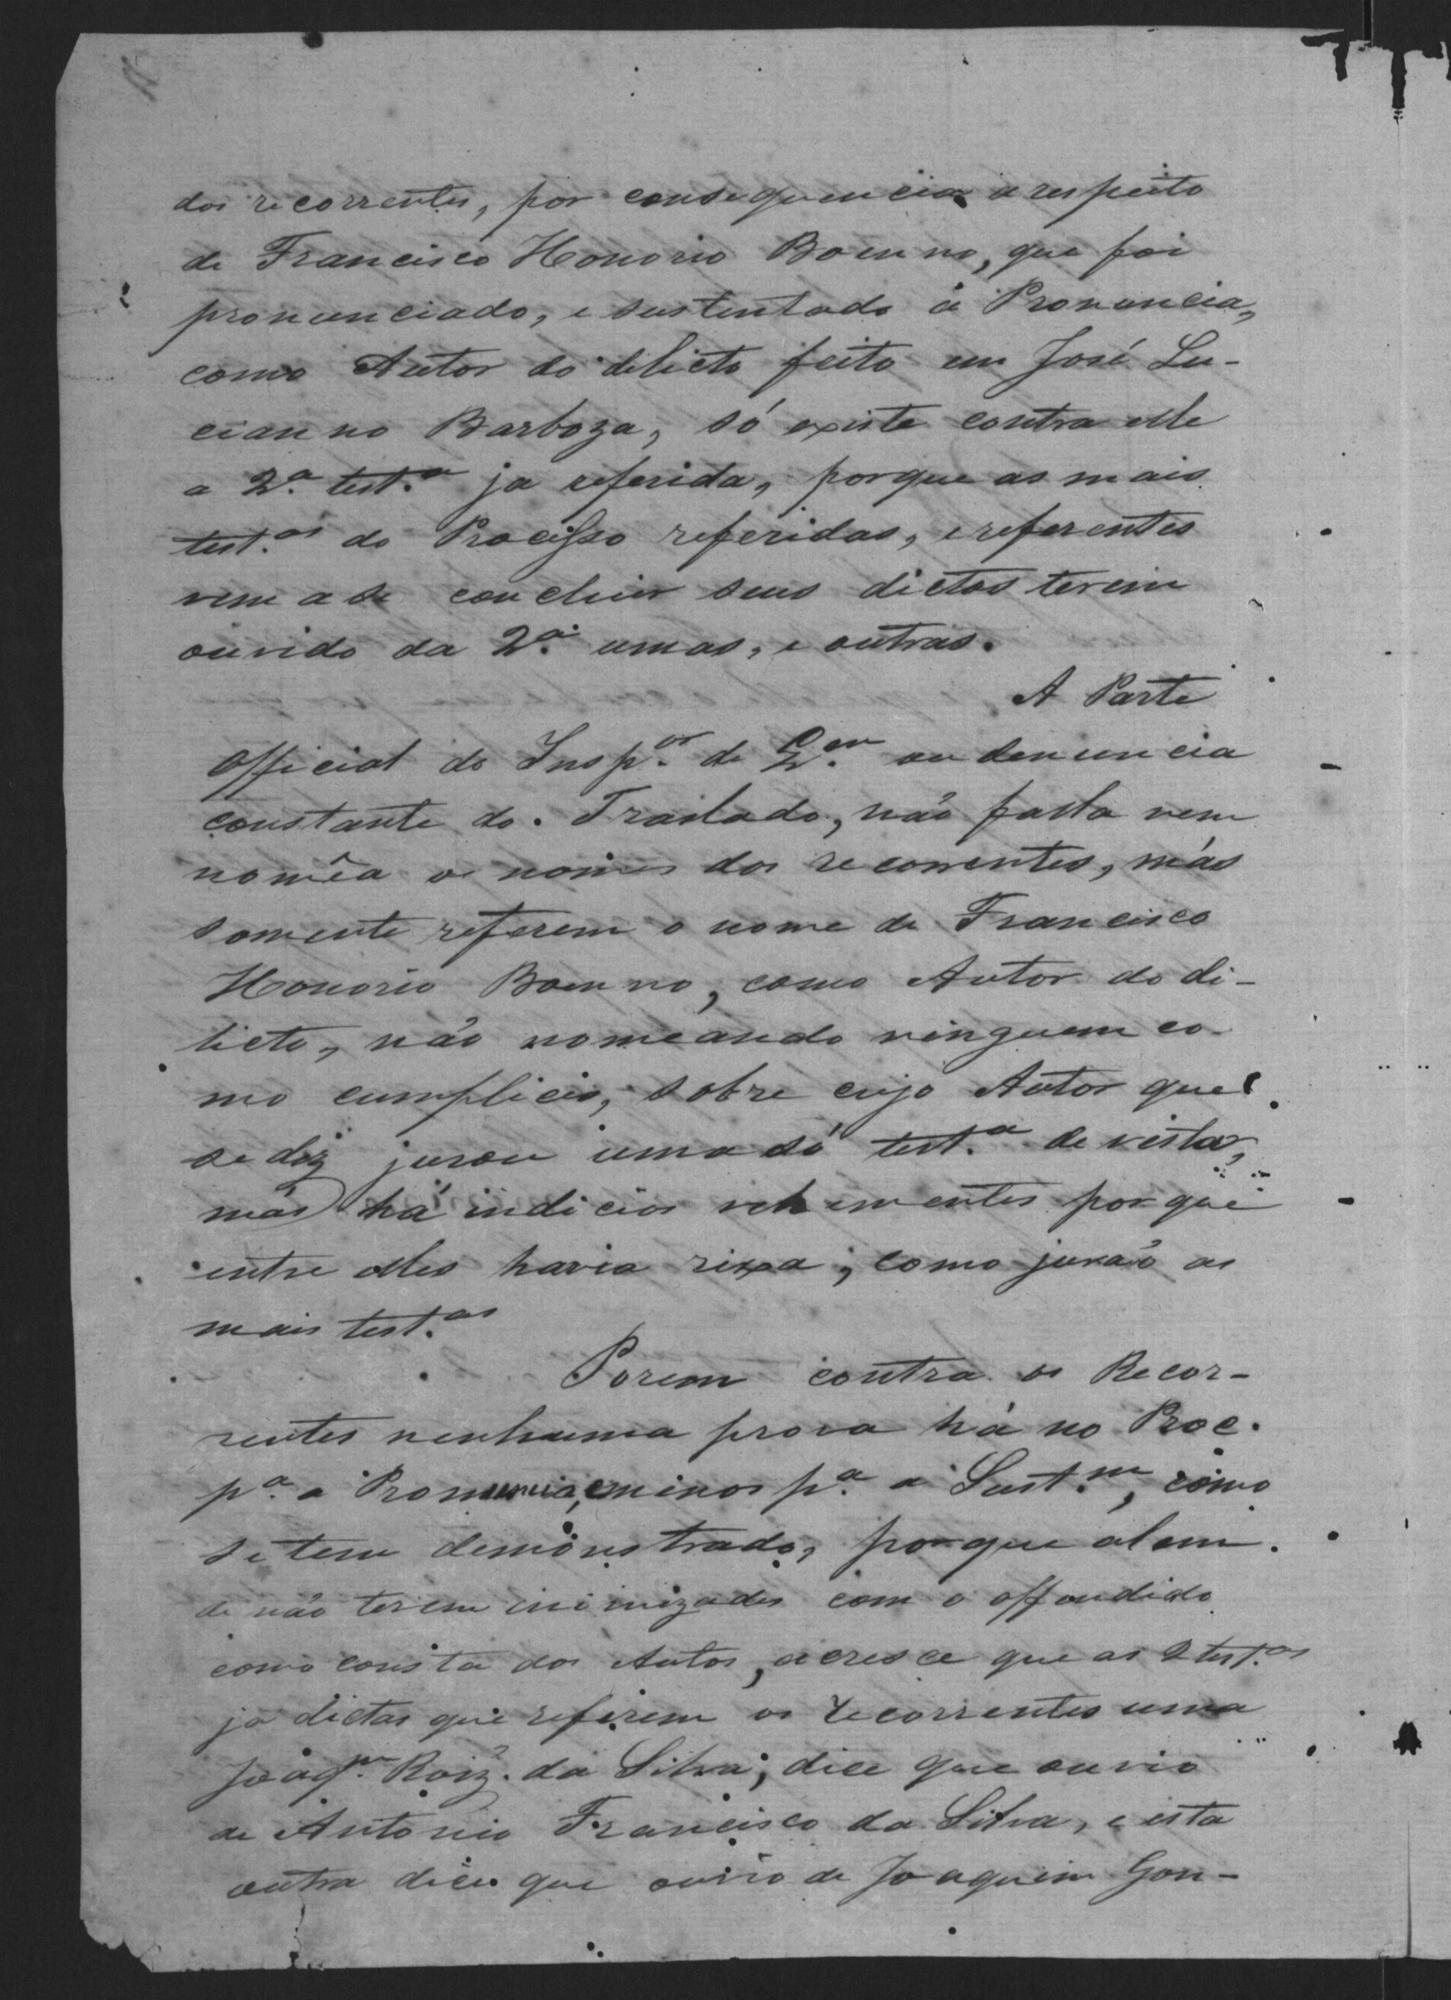 dos recorrentes, por consequencia a respeito
de Francisco Honorio Boenno, que foi
pronunciado, e sustentado á Pronuncia,
como Autor do delicto feito em José Lu-
cianno Barboza, só existe contra elle
a 2.ª test.ª ja referida, porque as mais
test.as do Procisso referidas, e referentes
vem a se concluir seus dictos terem
ouvido da 2.ª umas, e outras.
A Parte
official do Insp.or de Q.em ou denuncia
constante do Traslado, não falla nem
nomêa os nomes dos recorrentes, más
somente referem o nome de Francisco
Honorio Boenno, como Autor do di-
licto, não nomeando ninguem co-
mo cumplicis, sobre cujo Autor que
se diz jurou uma só test.ª de vista,
más há indicios vehementes por que
entre elles havia rixa, como jurão as
mais test.as
Porem contra os Recor-
rentes nenhuma prova há no Proc.
p.ª a Pronuncia, e minos p.ª a Sust.m, como
se tem demonstrado, porque alem
de não terem inimizades com o offendido
como consta dos Autos, acresce que as 2 test.as
ja dictas que referem os recorrentes uma
Joaq.m Roiz. da Silva, dice que ouvio
de Antonio Francisco da Silva, e esta
outra dice que ouvio de Joaquim Gon-